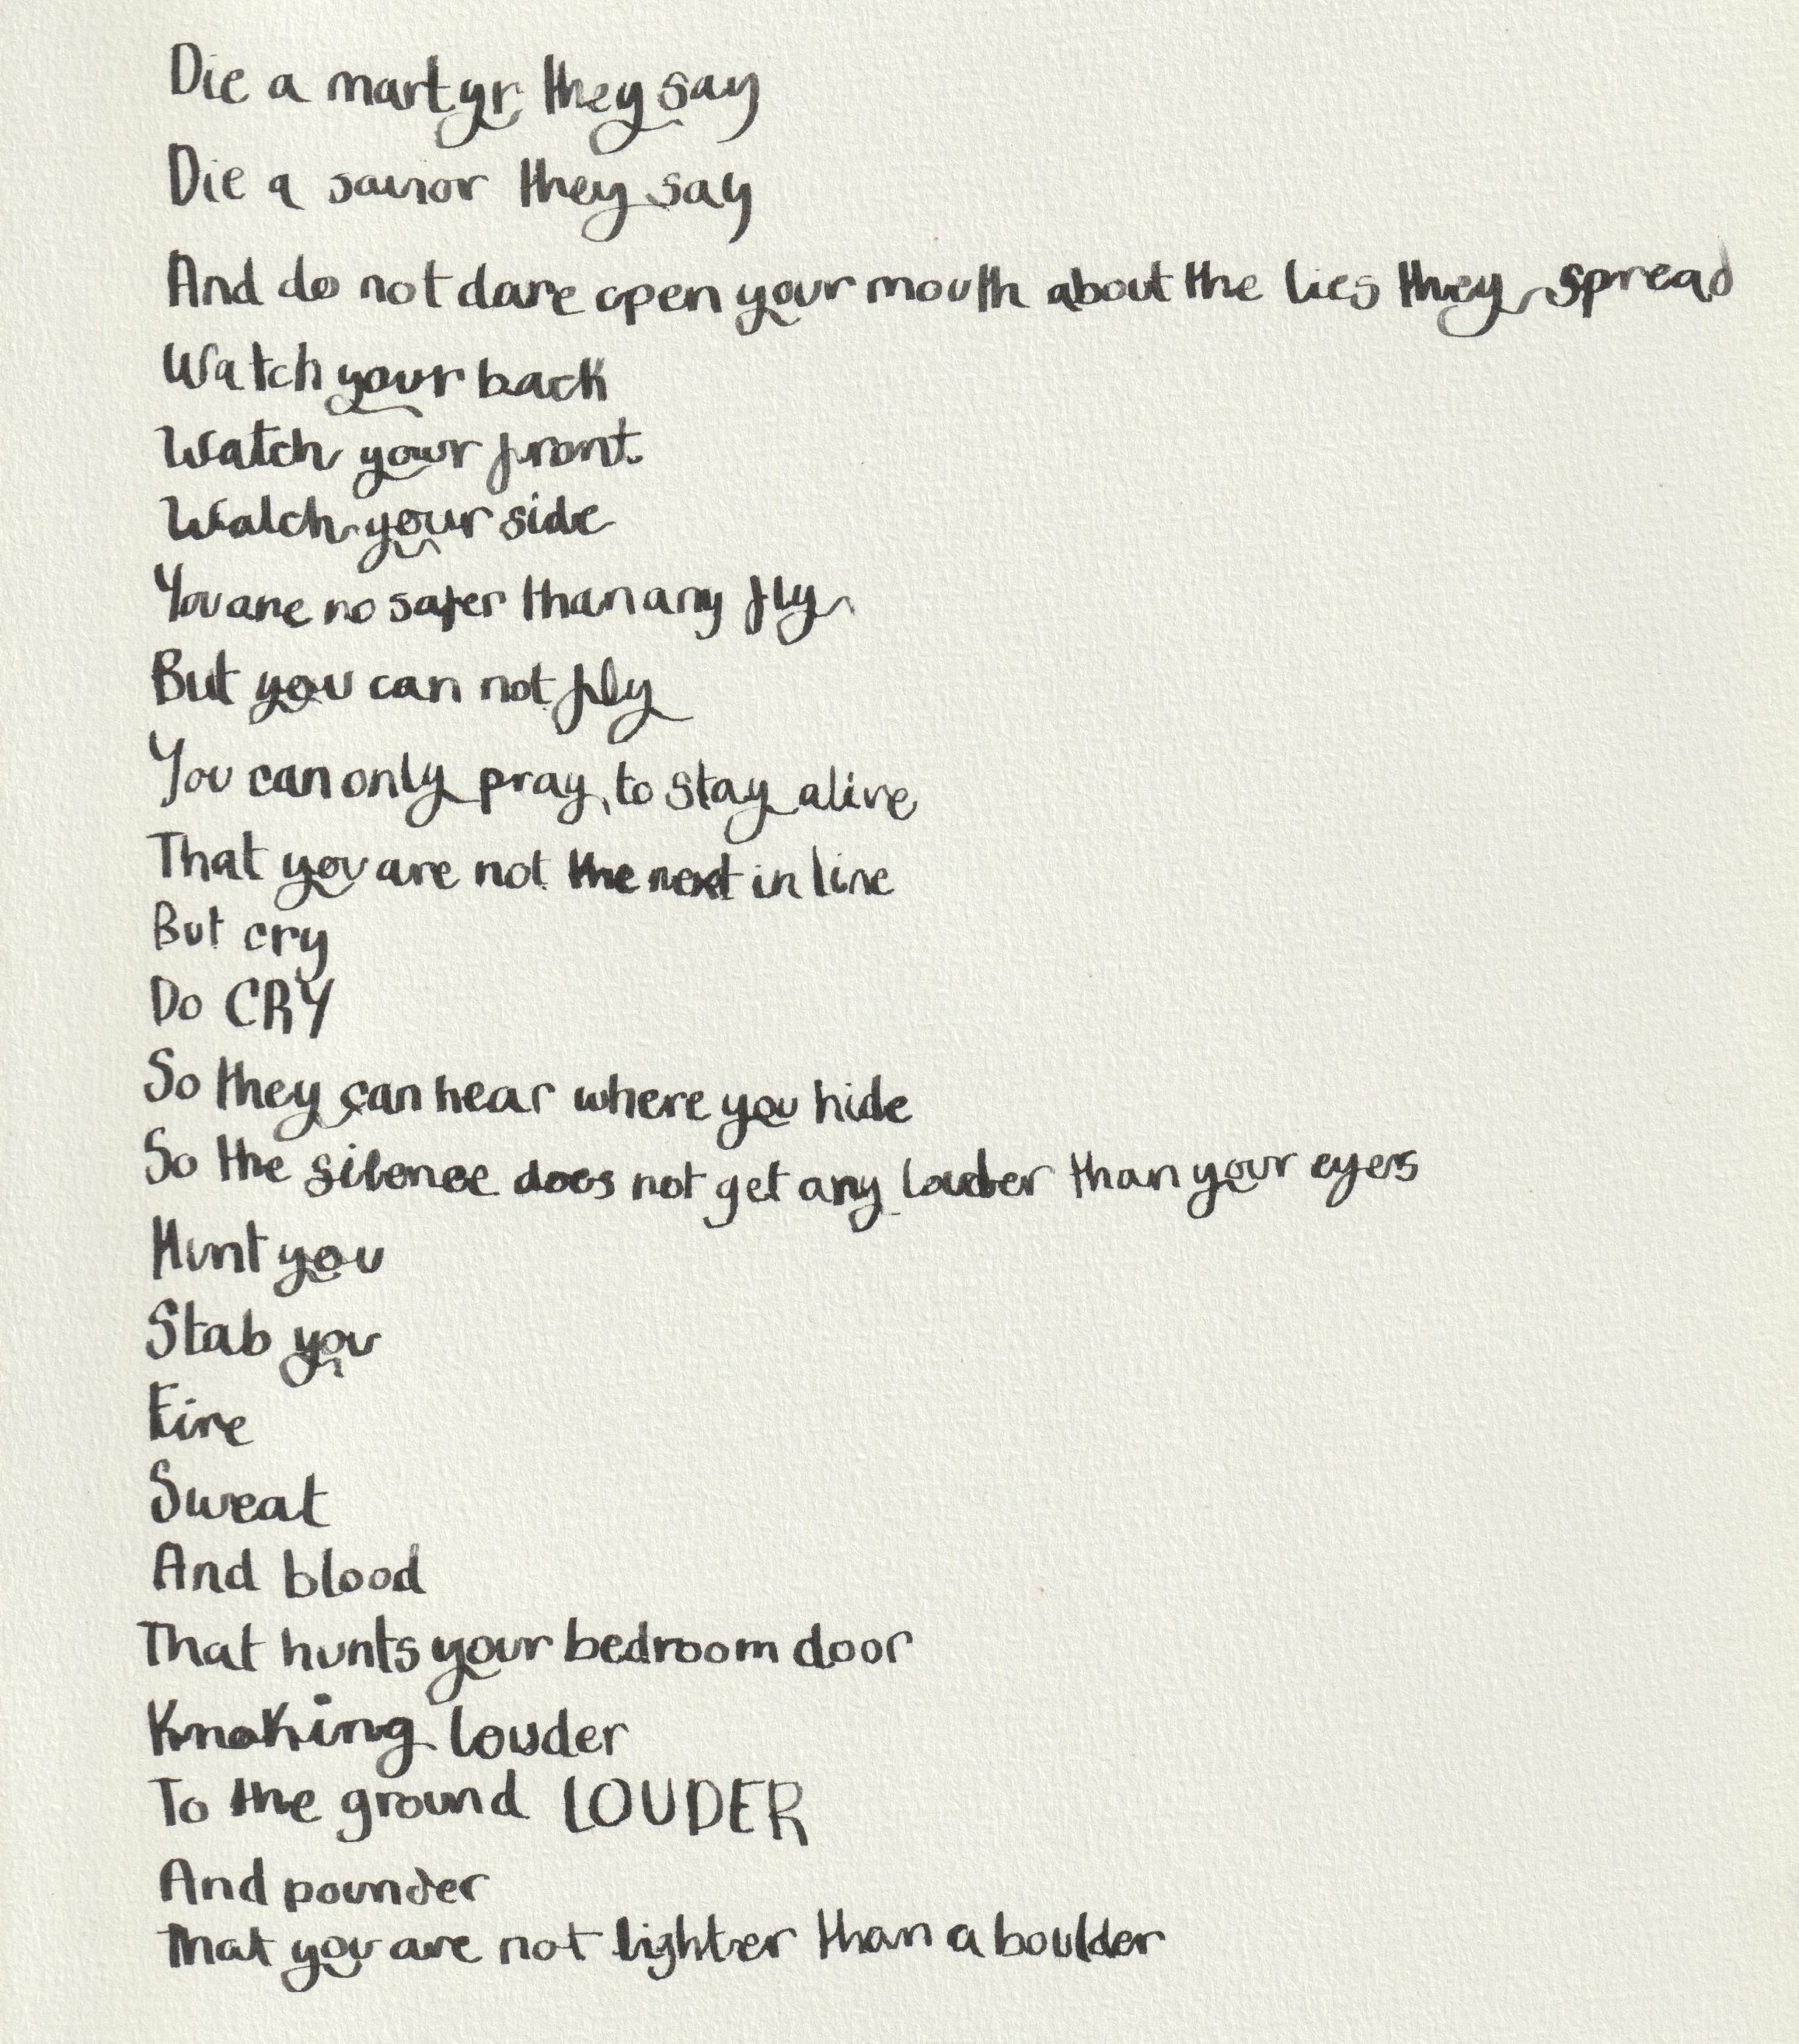 Die a martyr they say
Die a savior they say
And do not dare open your mouth about the lies they spread
Watch your back
Watch your front.
Watch your side
You are no safer than any fly
But you can not fly
You can only pray, to stay alive
That you are not the next in line
But cry
Do CRY
So they can hear where you hide
So the silence does not get any louder than your eyes
Hunt you
Stab you
Fire
Sweat
And blood
That hunts your bedroom door
Knoking louder
To the ground LOUDER
And pounder
That you are not lighter than a boulder